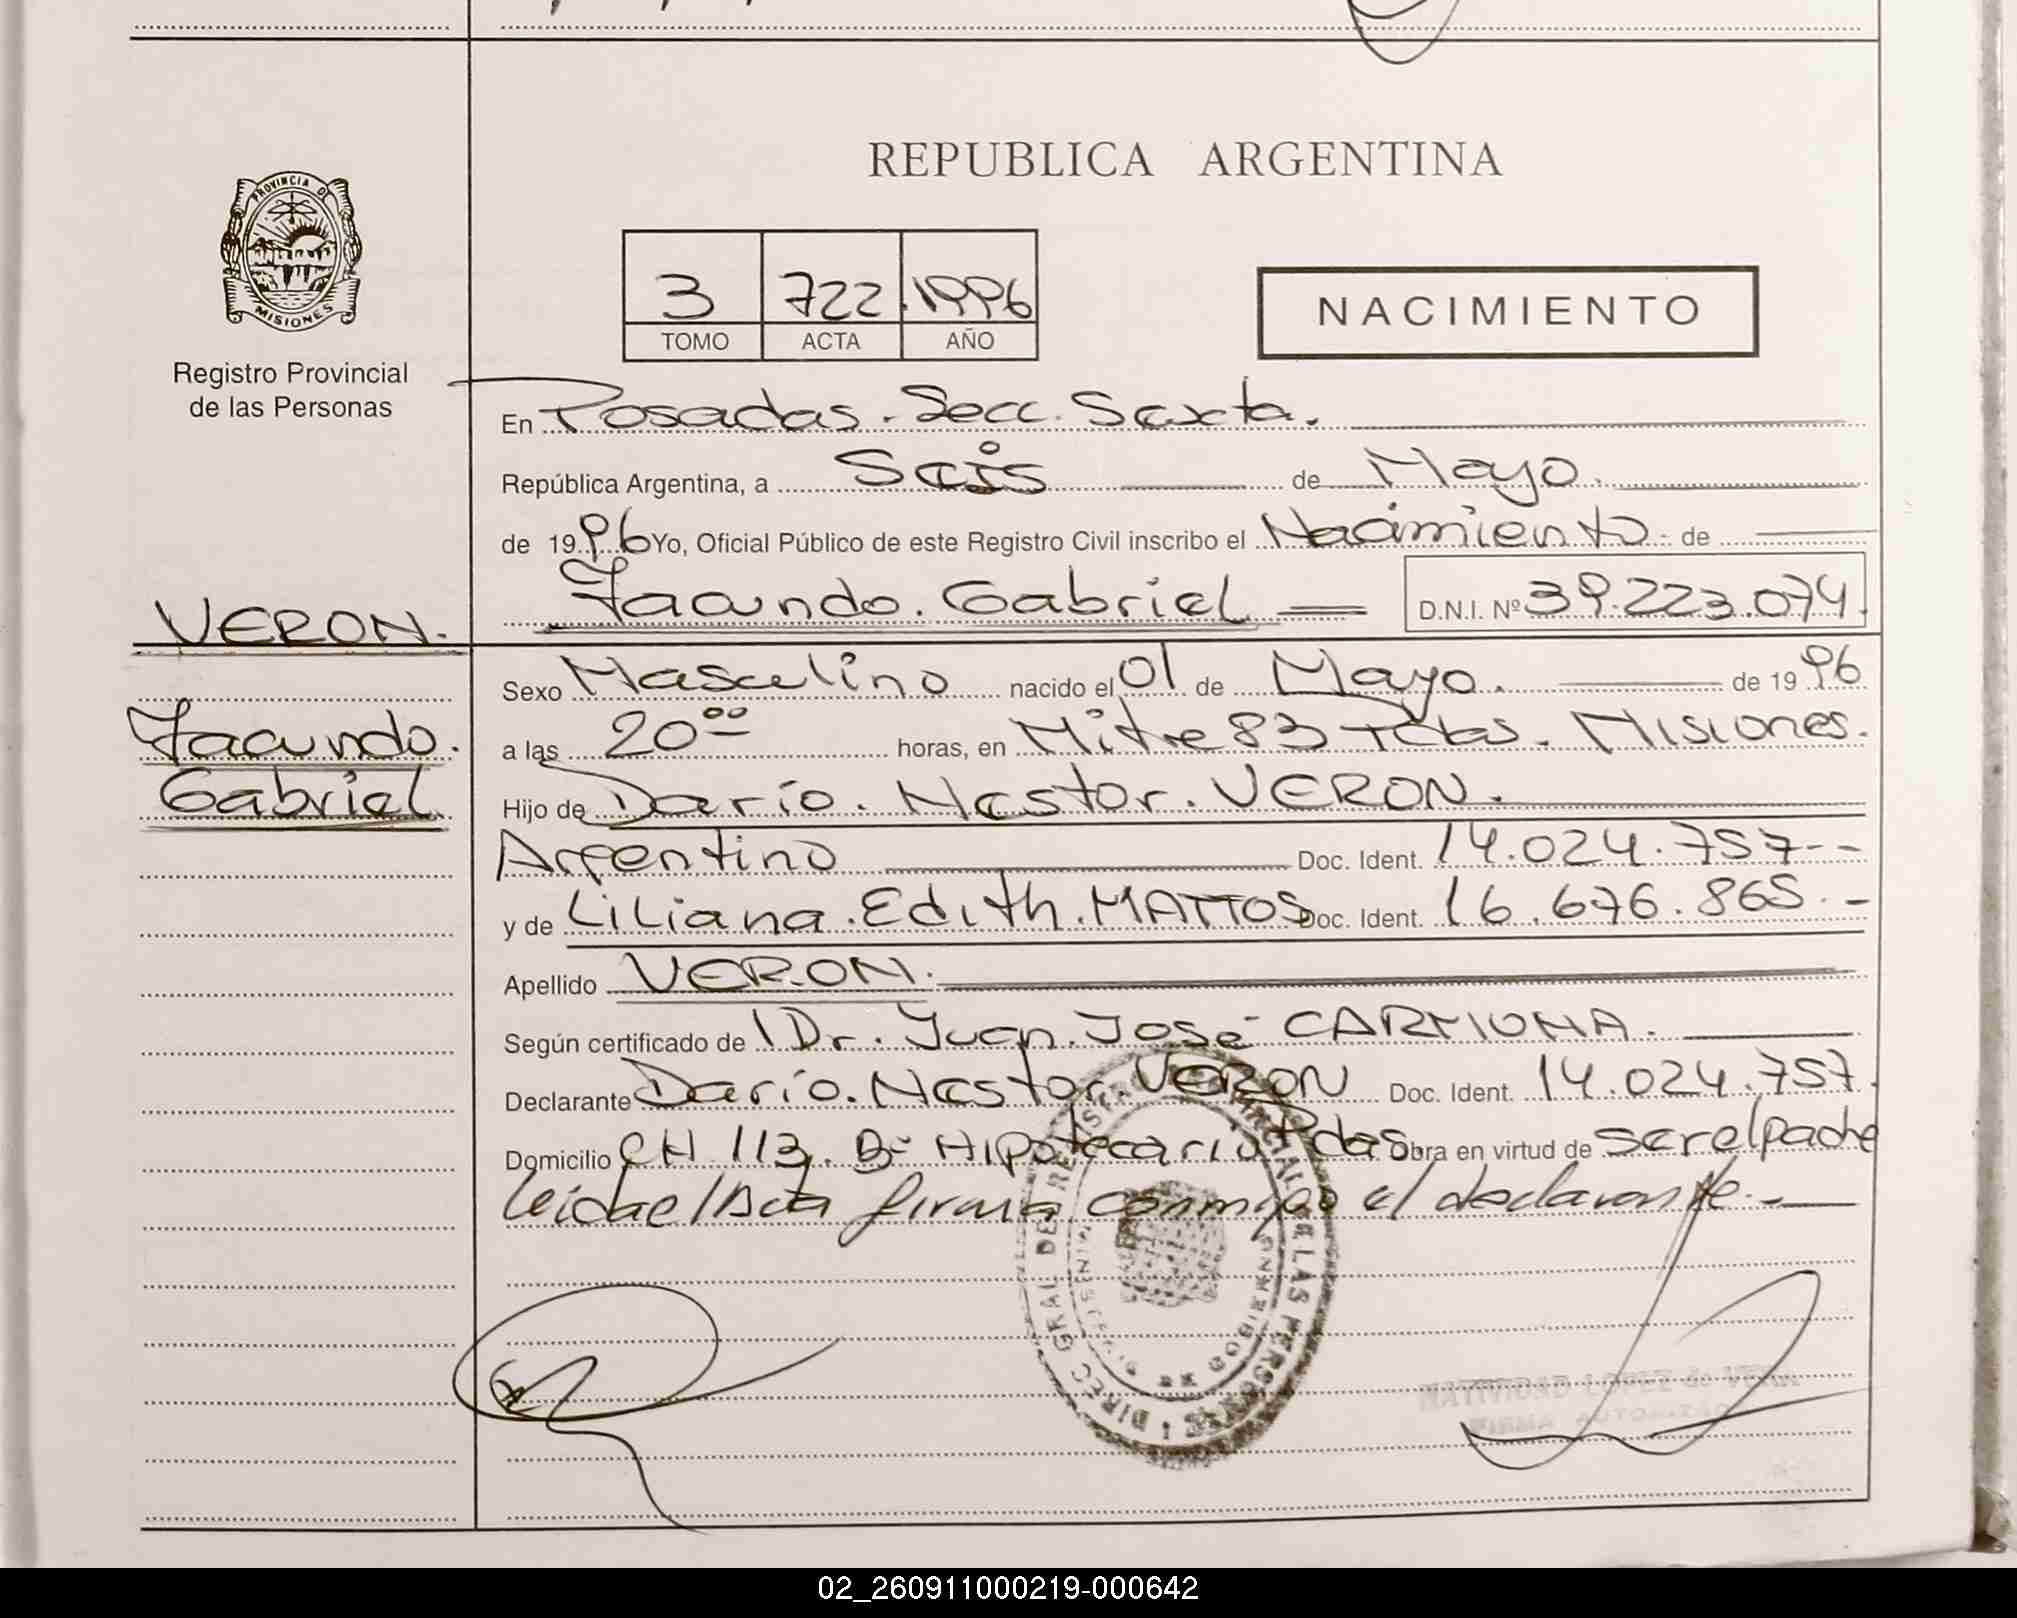 REPUBLICA ARGENTINA
PROVINCIA DE
MISIONES
Registro Provincial
de las Personas
3 722 1996
TOMO ACTA AÑO
NACIMIENTO
En Posadas. Secc. Sexta.
República Argentina, a Seis de Mayo.
de 1996 Yo, Oficial Público de este Registro Civil inscribo el Nacimiento de
Facundo. Gabriel D.N.I. Nº 39.223.074.
VERON.
Facundo.
Gabriel
Sexo Masculino nacido el 01 de Mayo. de 1996
a las 20⁰⁰ horas, en Mitre 83 Pdas. Misiones.
Hijo de Darío. Nestor. VERON.
Argentino Doc. Ident. 14.024.757--
y de Liliana. Edith. MATTOS Doc. Ident. 16.676.865.-
Apellido VERON.
Según certificado de Dr. Juan. José CARMONA.
Declarante Darío. Nestor. VERON Doc. Ident. 14.024.757.
Domicilio CH 113. Bº Hipotecario Pdas Obra en virtud de ser el padre
leida el Acta firma conmigo el declarante.-
DIREC. GRAL DEL REGISTRO PROVINCIAL DE LAS PERSONAS
NATIVIDAD LOPEZ de VERA
FIRMA AUTORIZADA
02_260911000219-000642